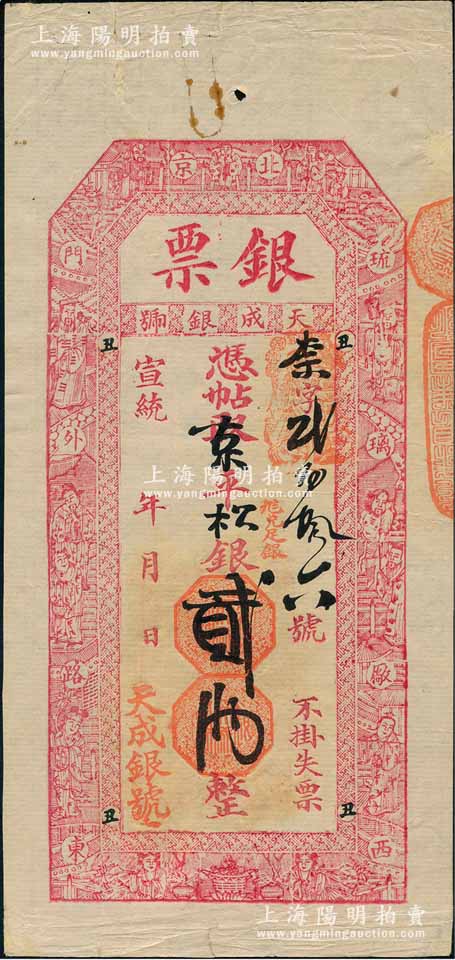 上海陽明拍賣
www.yangmingauction.com
北京
琉璃廠西
門外路東
銀票
天成銀號
丑
丑
柰字貳
六號
不掛失票
憑帖發京平松銀貳兩整
宣統年月日
天成銀號
丑
丑
上海陽明拍賣
www.yangmingauction.com
上海陽明拍賣
www.yangmingauction.com